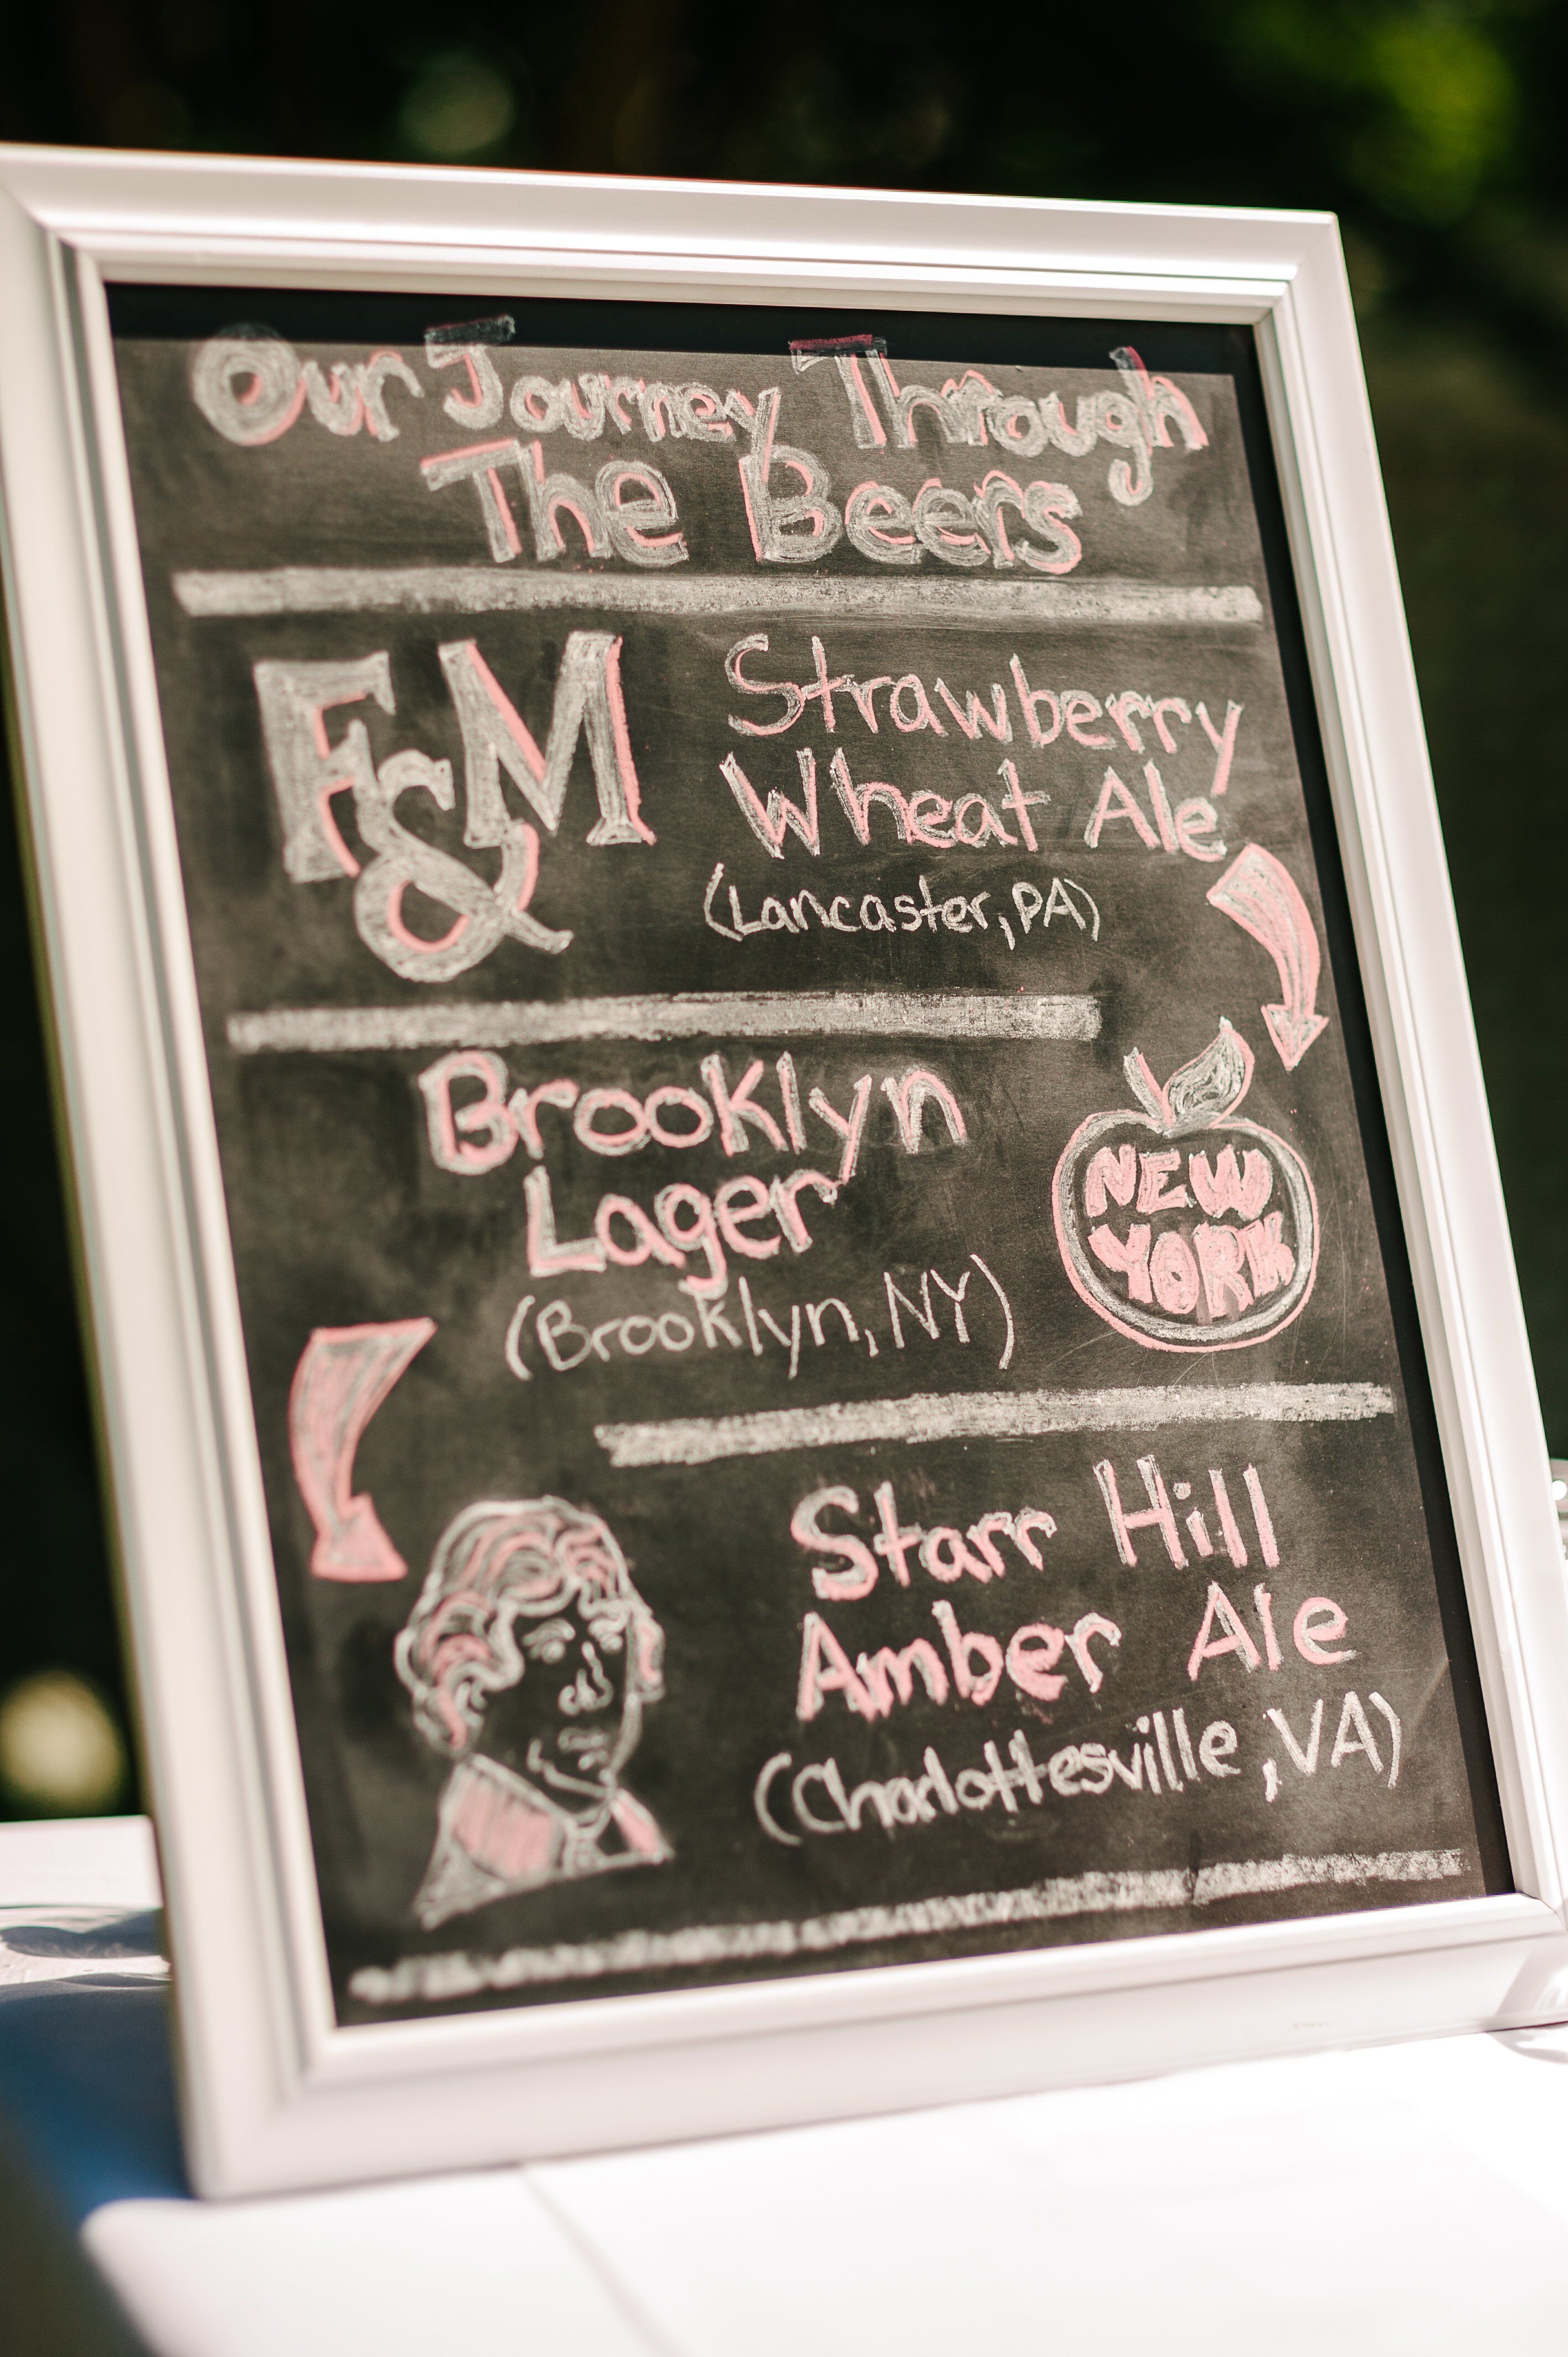 Our Journey Through
The Beers
F&M
Strawberry
Wheat Ale
(Lancaster, PA)
Brooklyn
Lager
(Brooklyn, NY)
NEW
YORK
Starr Hill
Amber Ale
(Charlottesville, VA)